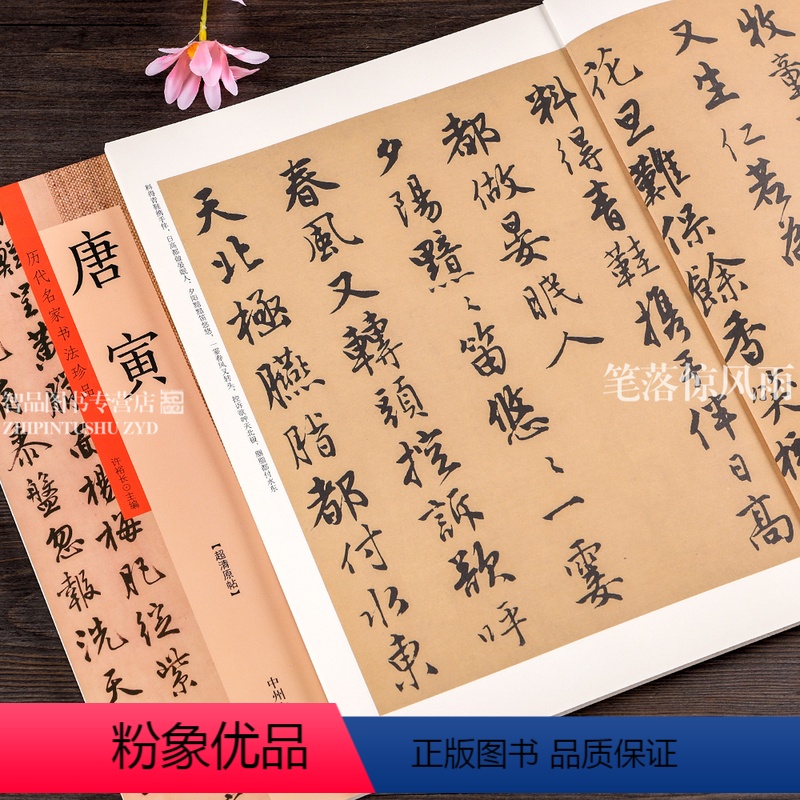 牧童
又生仁若為
花旦難保餘香笑樹
料得青鞋携手伴日高
都做晏眠人
夕陽黯〻笛悠〻一霎
春風又轉頭控訴歌呼
天北極臙脂都付水東
料得青鞋携手伴，日高都做晏眠人。夕阳黯黯笛悠悠，一霎春风又转头。控诉欲呼天北极，胭脂都付水东
历代名家书法珍品
唐寅
许裕长⊙主编
【超清原帖】
中州
忽報洗天
梅肥綻紫
智品图书专营店
ZHIPINTUSHU ZYD
笔落惊风雨
粉象优品
正版图书 品质保证